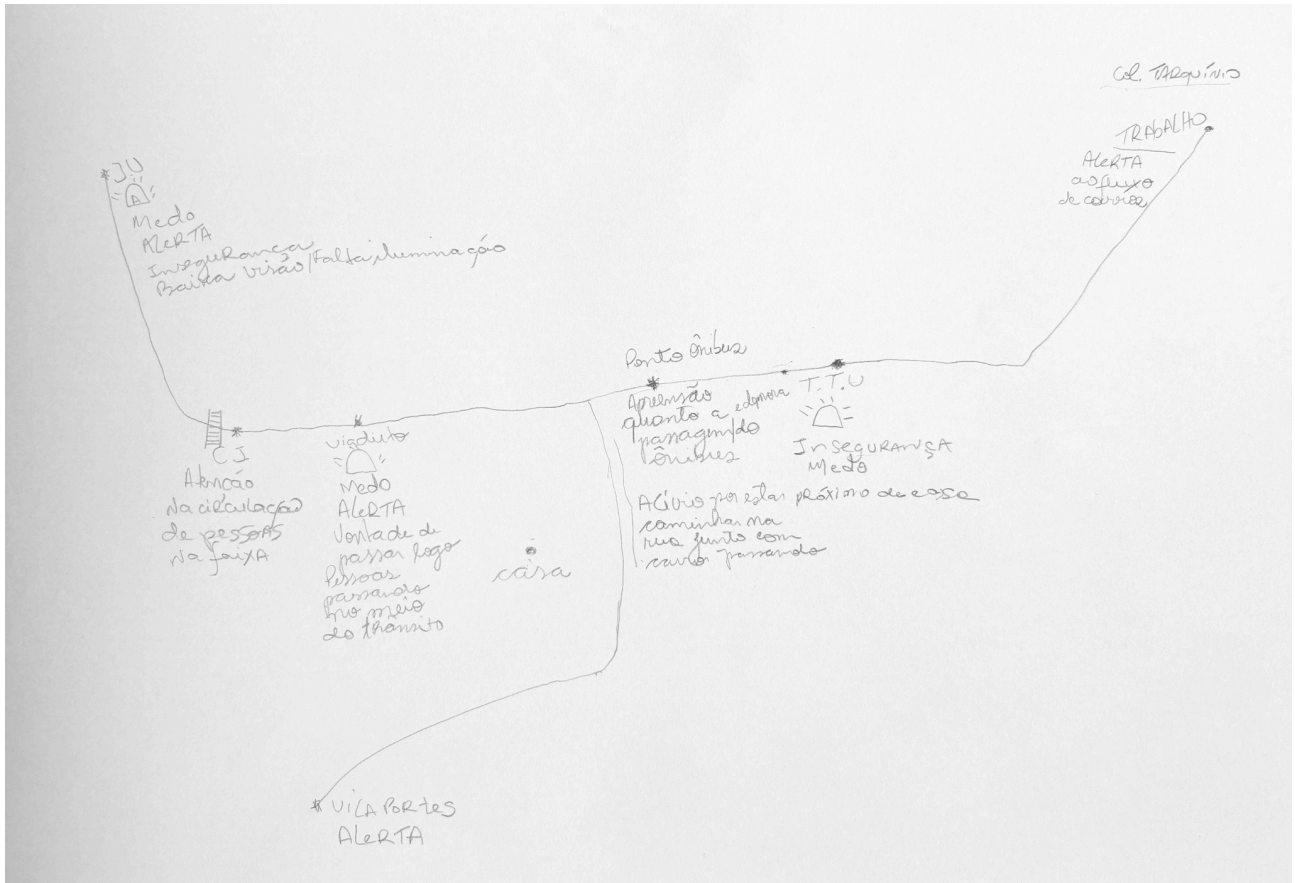 Col. TARQUÍNIO
TRAbALHO
ALeRTA
ao fluxo
de carros
JU
A
Medo
ALeRTA
InseguRança
Baixa visão/Falta iluminação
Ponto Ônibus
Apreensão
quanto a e demora
passagem/do
Ônibus
T.T.U
InSeguRANÇA
Medo
CJ
Atenção
Na ciRculação
de pessoas
Na faixA
viaduto
Medo
ALeRTA
Vontade de
passar logo
Pessoas
passando
no meio
do trânsito
Alívio por estar próximo de casa
caminhar na
rua junto com
carros passando
casa
ViLA PoRtes
ALeRTA